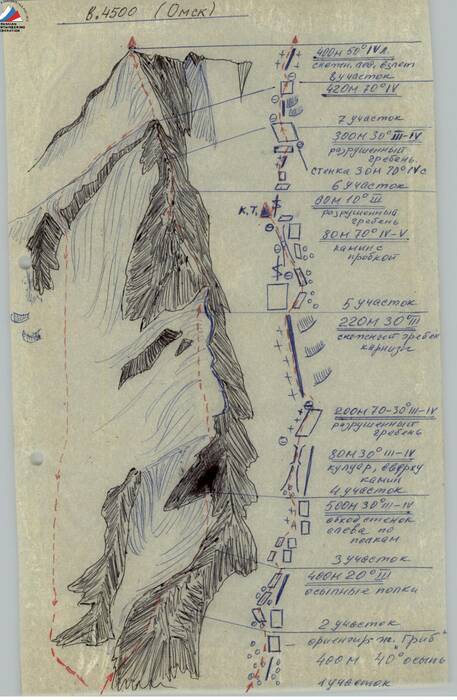 RUSSIAN
MOUNTAINEERING
FEDERATION
в.4500 (Омск)
400м 50° IV л.
8 участок
420м 70° IV
7 участок
300м 30° III-IV
разрушенный
гребень.
стенка 30м 70° IV с
6 участок
К.Т.
80м 10° III
разрушенный
гребень
80м 70° IV-V
камин с
пробкой
5 участок
220м 30° III
снежный гребень
карнизы
200м 70-30° III-IV
разрушенный
гребень
80м 30° III-IV
кулуар, сверху
камин
4 участок
500м 30° III-IV
обход стенок
слева по
полкам
3 участок
400м 20° III
осыпные полки
2 участок
ориентир ж. "Гриб"
400м 40° осыпь
1 участок